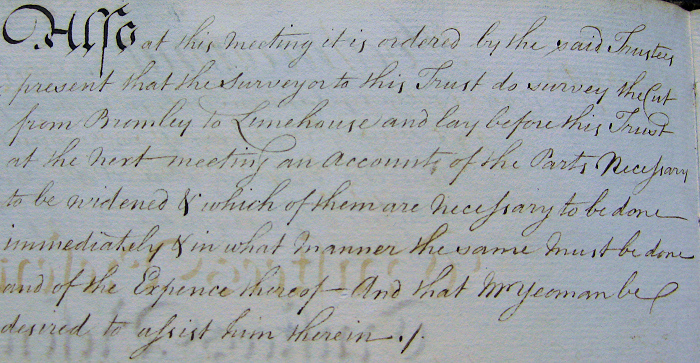 Also at this meeting it is ordered by the said Trustees
present that the Surveyor to this Trust do survey the Cut
from Bromley to Limehouse and lay before this Trust
at the next meeting an Accounts of the Parts Necessary
to be widened & which of them are necessary to be done
immediately & in what manner the same must be done
and of the Expence thereof - And that Mr Yeoman be
desired to assist him therein ./.